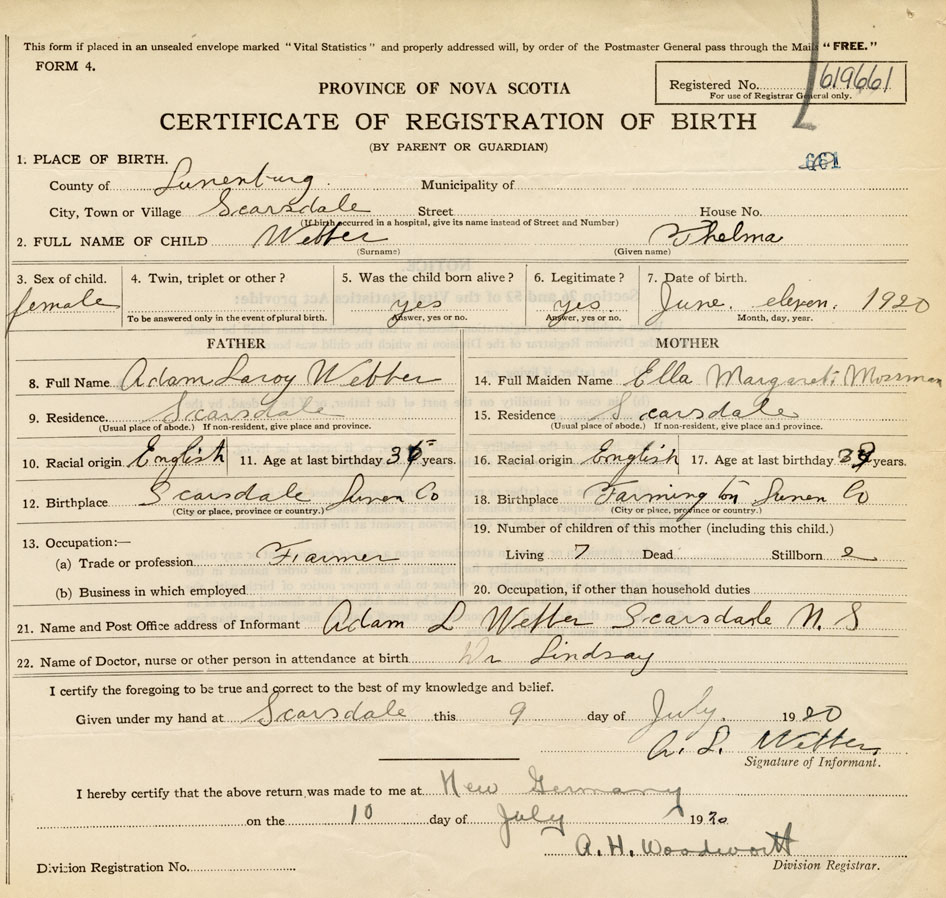 This form if placed in an unsealed envelope marked "Vital Statistics" and properly addressed will, by order of the Postmaster General pass through the Mails "FREE."
FORM 4.
Registered No. 619661
For use of Registrar General only.
PROVINCE OF NOVA SCOTIA
CERTIFICATE OF REGISTRATION OF BIRTH
(BY PARENT OR GUARDIAN)
661
1. PLACE OF BIRTH.
County of Lunenburg Municipality of
City, Town or Village Scarsdale Street House No.
(If birth occurred in a hospital, give its name instead of Street and Number)
2. FULL NAME OF CHILD Webber Thelma
(Surname) (Given name)
3. Sex of child. 4. Twin, triplet or other? 5. Was the child born alive? 6. Legitimate? 7. Date of birth.
female yes yes. June. eleven. 1920
To be answered only in the event of plural birth. Answer, yes or no. Answer, yes or no. Month, day, year.
FATHER MOTHER
8. Full Name Adam Laroy Webber 14. Full Maiden Name Ella Margaret Mossman
9. Residence. Scarsdale 15. Residence Scarsdale
(Usual place of abode.) If non-resident, give place and province. (Usual place of abode.) If non-resident, give place and province.
10. Racial origin English 11. Age at last birthday years. 16. Racial origin English 17. Age at last birthday years.
12. Birthplace Scarsdale Lunen Co 18. Birthplace Farmington Lunen Co
(City or place, province or country.) (City or place, province or country.)
19. Number of children of this mother (including this child.)
13. Occupation:—
(a) Trade or profession Farmer Living 7 Dead Stillborn 2
(b) Business in which employed 20. Occupation, if other than household duties
21. Name and Post Office address of Informant Adam L Webber Scarsdale N. S
22. Name of Doctor, nurse or other person in attendance at birth Dr Lindsay
I certify the foregoing to be true and correct to the best of my knowledge and belief.
Given under my hand at Scarsdale this 9 day of July. 1920
A. L. Webber
Signature of Informant.
I hereby certify that the above return was made to me at New Germany
on the 10 day of July 1920
A. H. Woodworth
Division Registration No. Division Registrar.